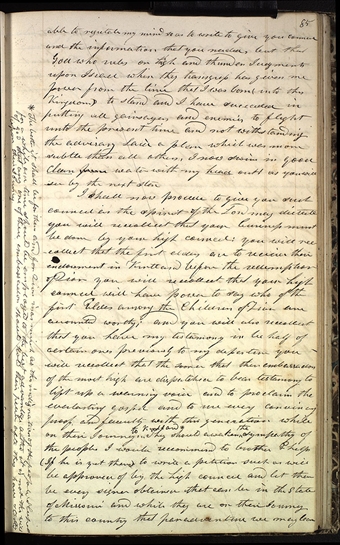 85
able to regulate my mind so as to write to give you counsel
and the information that you needed, but that
God who rules on high and thunders Judgments
upon Israel when they transgress has given me
power from the time that I was born into this
Kingdom to stand and I have succeeded in
putting all gainsayers and enemies to flight
unto the present time and not withstanding
the adversary laid a plan which was more
subtle than all others, I now swim in good
clean water with my head out as you will
see by the next star
I shall now procede to give you such
council as the spirit of the Lord may dictate
you will recollect that your business must
be done by your high council: you will rec
ollect that the first elders are to receive their
endowment in Kirtland before the redemption
of Zion you will recollect that your high
council will have power to say who of the
first Elders among the Children of Zion are
accounted worthy: and you will also recollect
that you have my testimony in behalf of
certain ones previously to my departure you
will recollect that the sooner that these embassadors
of the most high are dispatched to bear testimony to
lift up a warning voice and to proclaim the
everlasting gospel and to use every convincing
proof and faculty with this generation while
on their Journey to Kirtland
they should awaken the sympathy of
the people I would recommend to brother Phelps
(if he is yet there) to write a petition such as will
be approved of by the high council and let them
be every signer obtained that can be in the State
of Missouri and while they are on their Journey
to this country that peradventure we may learn